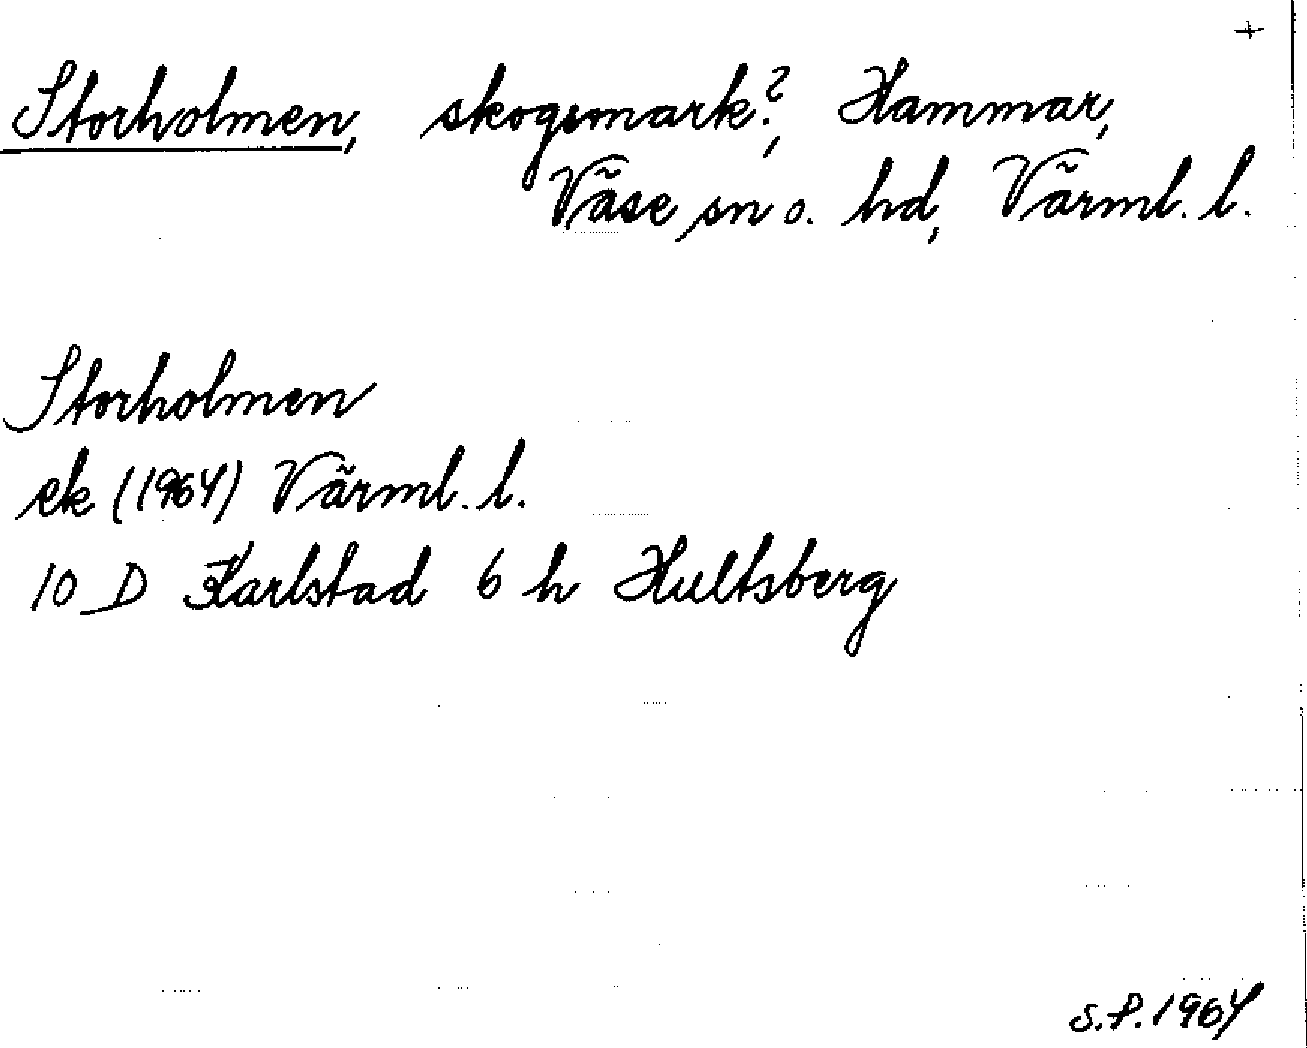 +
Storholmen, skogsmark?, Hammar,
Väse sn o. hd, Värml. l.
Storholmen
ek (1964) Värml. l.
10 D Karlstad 6 h Hultsberg
S.P. 1964